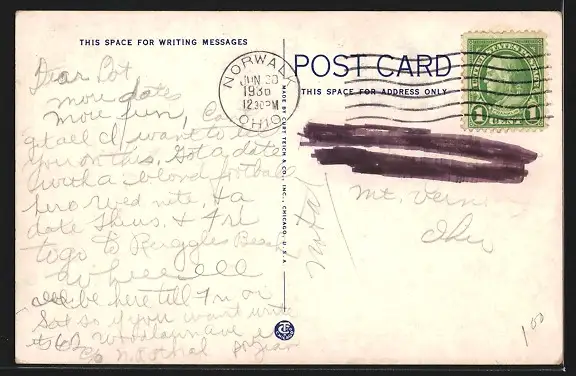 THIS SPACE FOR WRITING MESSAGES
Dear Dot
more dates
more fun,
want to
you on this. Got a date
with a blond football
hero Wed nite, + a
date Thurs. + Fri
to go to Ruggles Beach
Wheeeeee
be here till Fri or
Sat so if you want write
to 62 Woodlawn Ave
c/o
MADE BY CURT TEICH & CO., INC., CHICAGO, U.S.A.
NORWALK
JUN 30
1936
12 30 PM
OHIO
POST CARD
THIS SPACE FOR ADDRESS ONLY
UNITED STATES POSTAGE
1 CENT 1
Mt. Vernon
Ohio
1 00